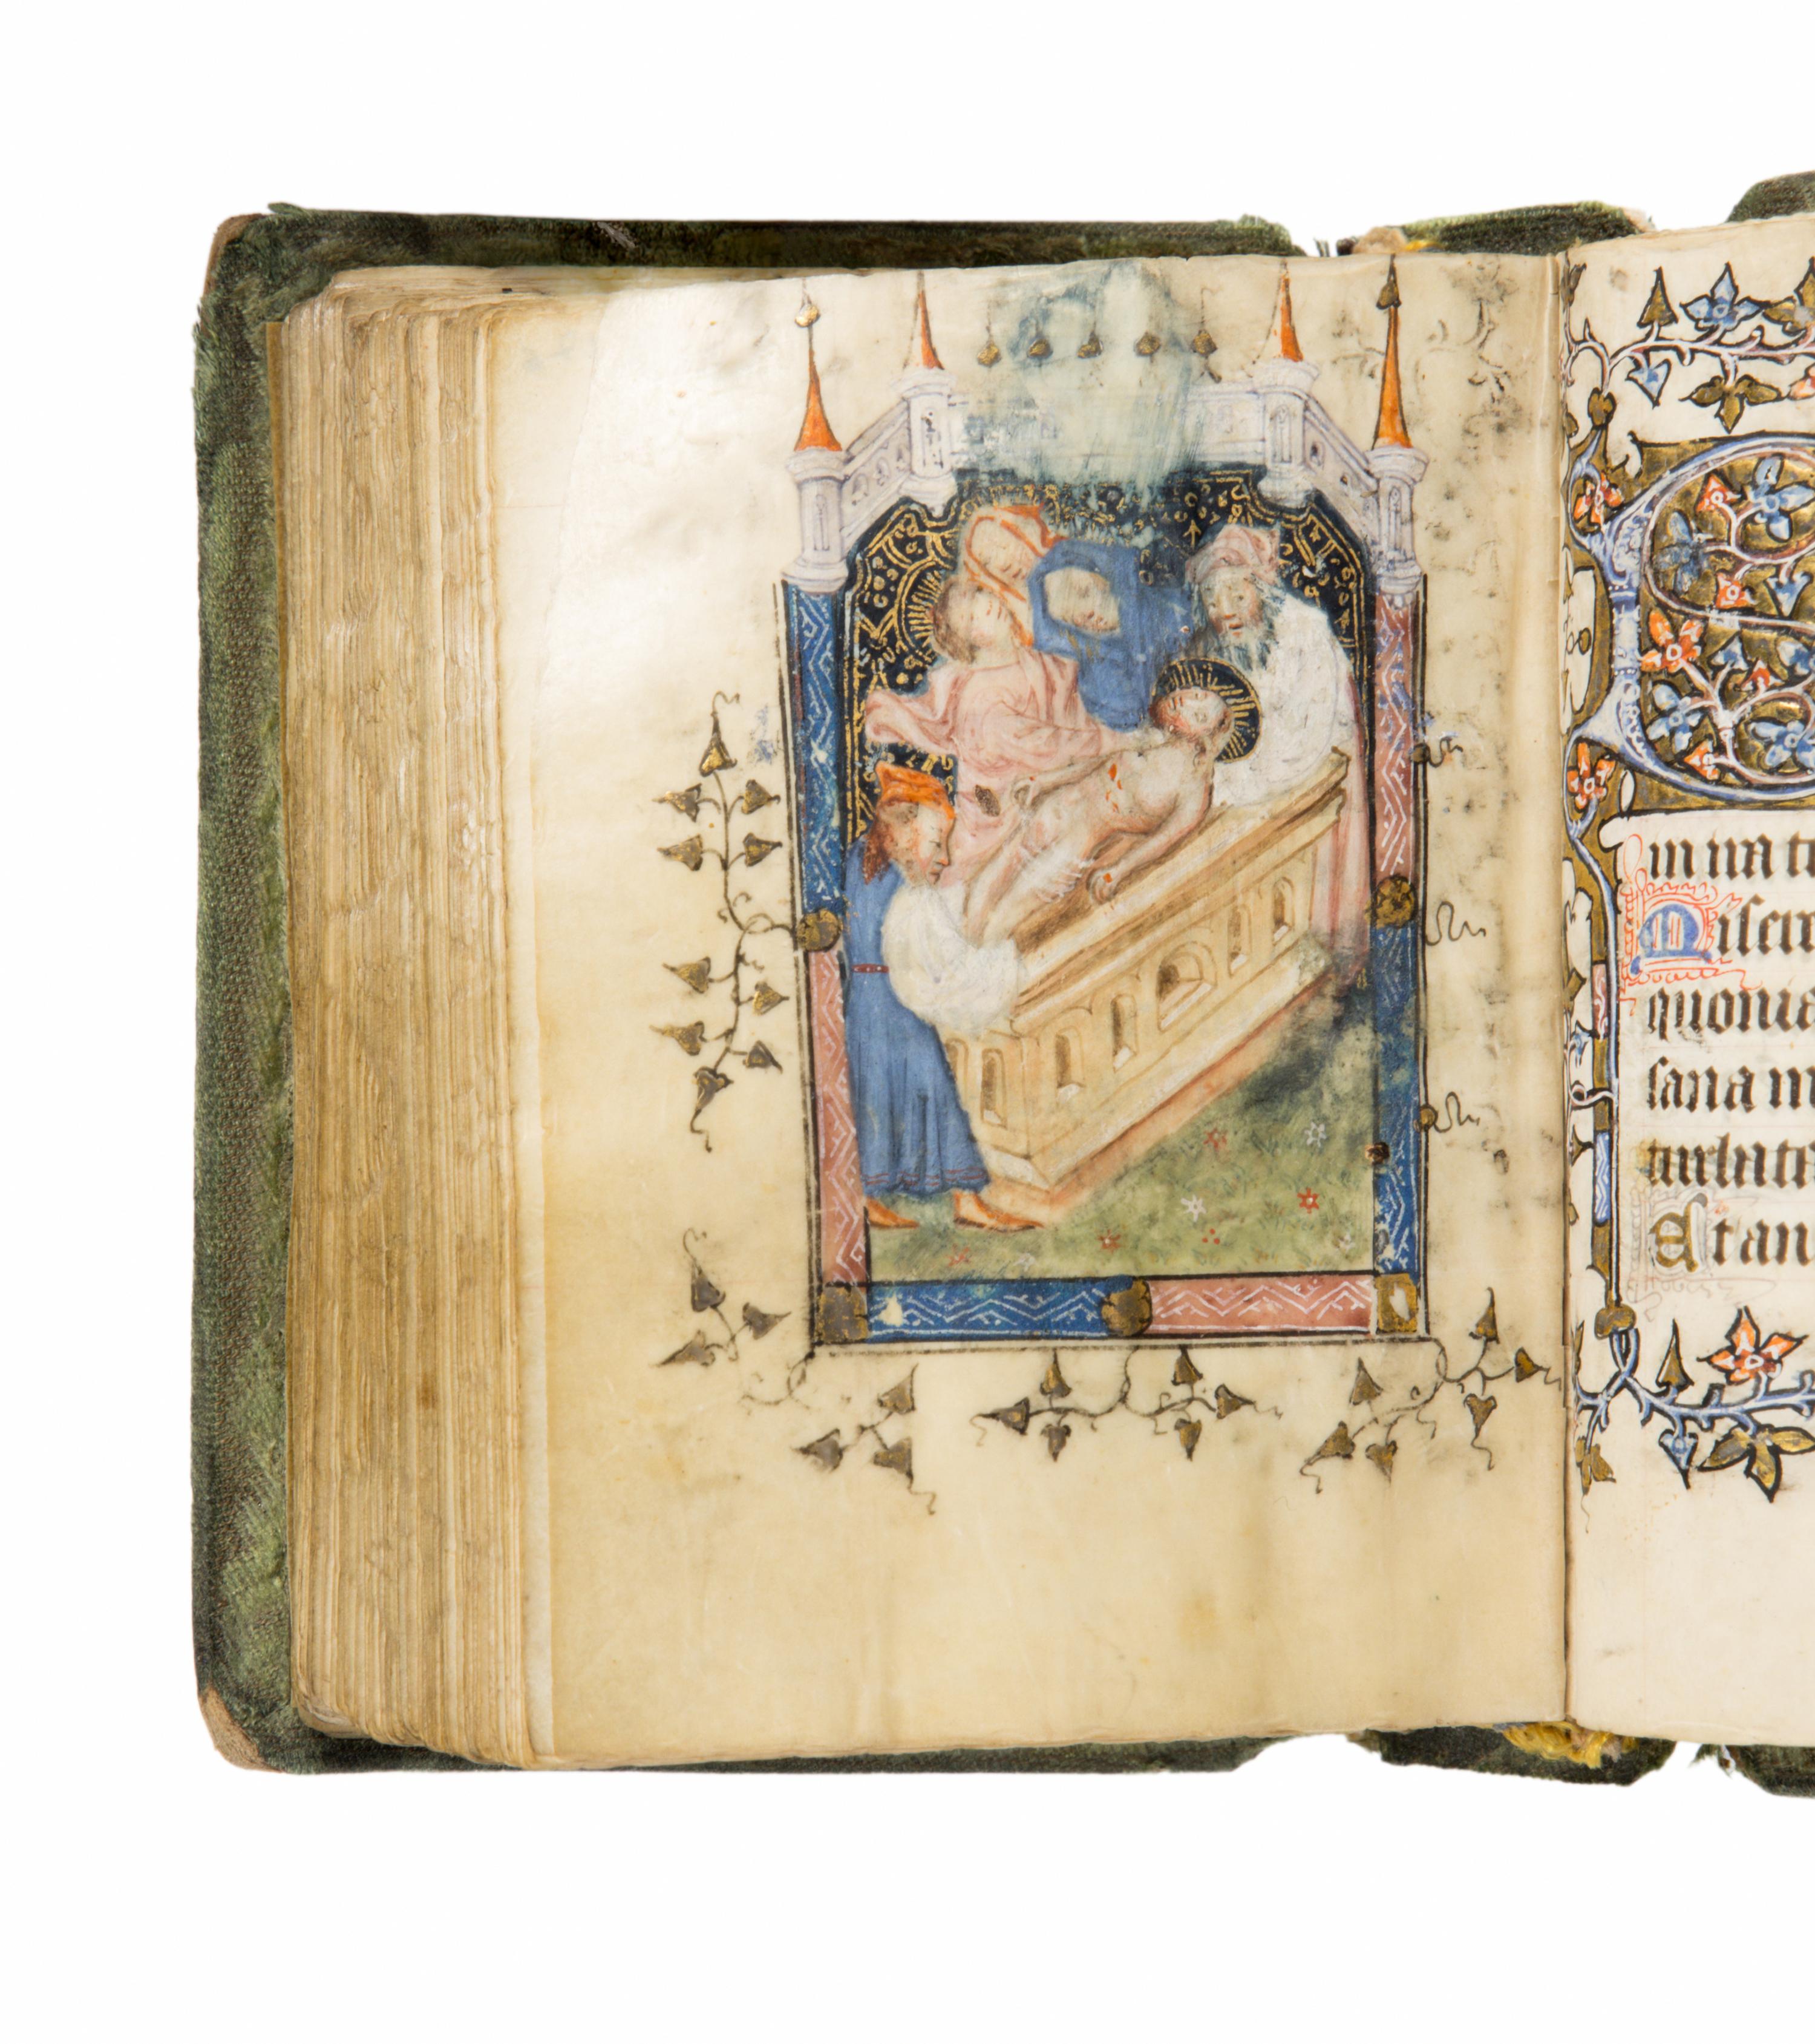 in ira tu
Miser
quonia
sana m
turbata
Et an